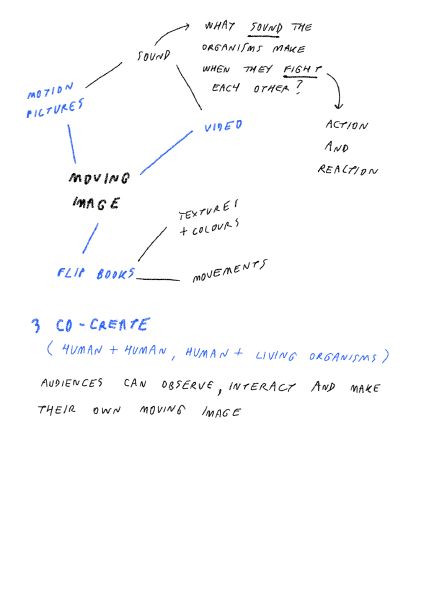 WHAT SOUND THE
ORGANISMS MAKE
WHEN THEY FIGHT
EACH OTHER?
SOUND
MOTION
PICTURES
VIDEO
ACTION
AND
REACTION
MOVING
IMAGE
TEXTURES
+ COLOURS
FLIP BOOKS
MOVEMENTS
3 CO-CREATE
(HUMAN + HUMAN, HUMAN + LIVING ORGANISMS)
AUDIENCES CAN OBSERVE, INTERACT AND MAKE
THEIR OWN MOVING IMAGE